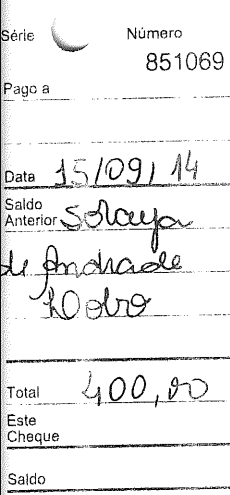 Série
Número
851069
Pago a
Data 15/09/14
Saldo
Anterior Soraya
de Andrade
Total 400,00
Este
Cheque
Saldo